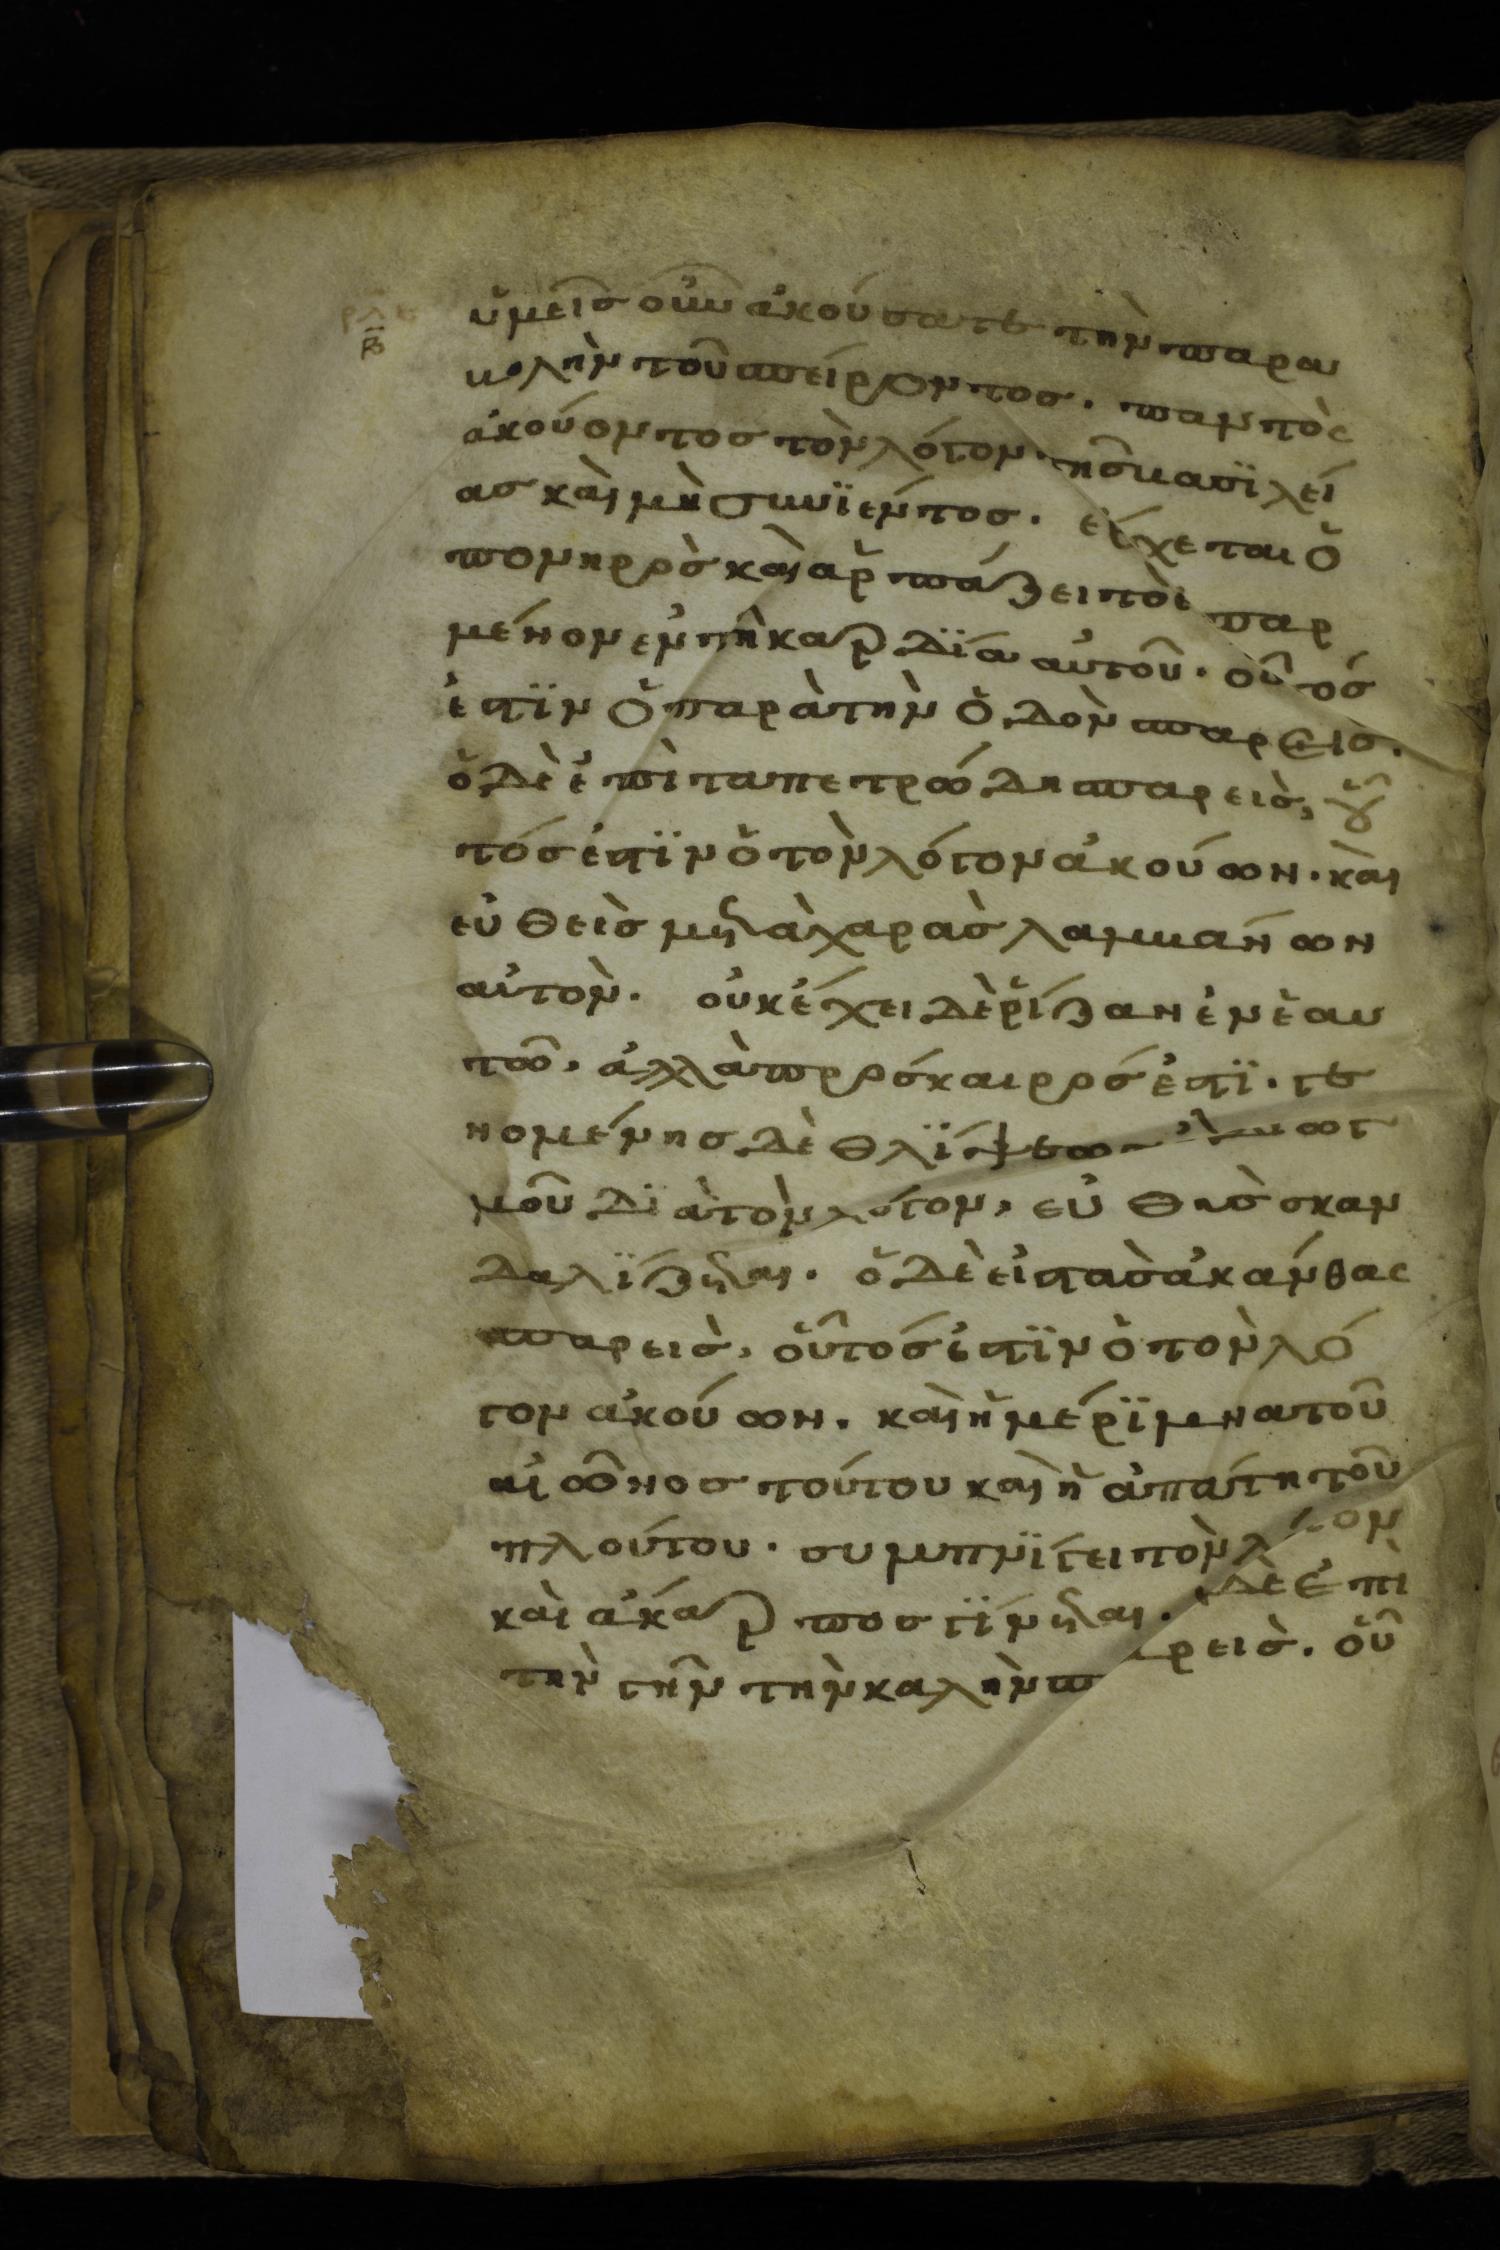 ρλε
β
ὑμεῖσ οὖν ἀκούσατε τὴν παρα
βολὴν τοῦ σπείροντοσ. παντὸς
ἀκούοντοσ τὸν λόγον τῆσ βασϊλεί
ασ καὶ μὴ συνϊεντοσ. ἔρχεται ὁ
πονηρὸσ καὶ ἁρπάζει τὸ ἐσπαρ
μένον ἐν τῆ καρδϊά αὐτοῦ. οὗτόσ
ἐστϊν ὁ παρὰ τὴν ὁδὸν σπαρεὶσ.
ὁ δὲ ἐπὶ τα πετρώδη σπαρεὶσ, οὗ
τόσ ἐστϊν ὁ τὸν λόγον ἀκούων. καὶ
εὐθεὶσ μετὰ χαρὰσ λαμβάνων
αὐτὸν. οὐκ ἔχει δὲ ῥίζαν ἐν ἑαυ
τῶ, ἀλλὰ πρόσκαιρόσ ἐστϊ. γε
νομένησ δὲ θλϊψεωσ ἢ διωγ
μοῦ δϊὰ τὸν λόγον, εὐθησ σκαν
δαλϊζεται. ὁ δὲ εἰσ τὰσ ἀκάνθας
σπαρεὶσ, οὗτόσ ἐστϊν ὁ τὸν λό
γον ἀκούων. καὶ ἡ μέρϊμνα τοῦ
αἰῶνοσ τούτου καὶ ἡ ἀπάτη τοῦ
πλούτου. συμπνϊγει τὸν λόγον
καὶ ἀκάρποσ γϊνεται. ὁ δὲ ἐπὶ
τὴν γῆν τὴν καλὴν σπαρεὶσ. οὗ